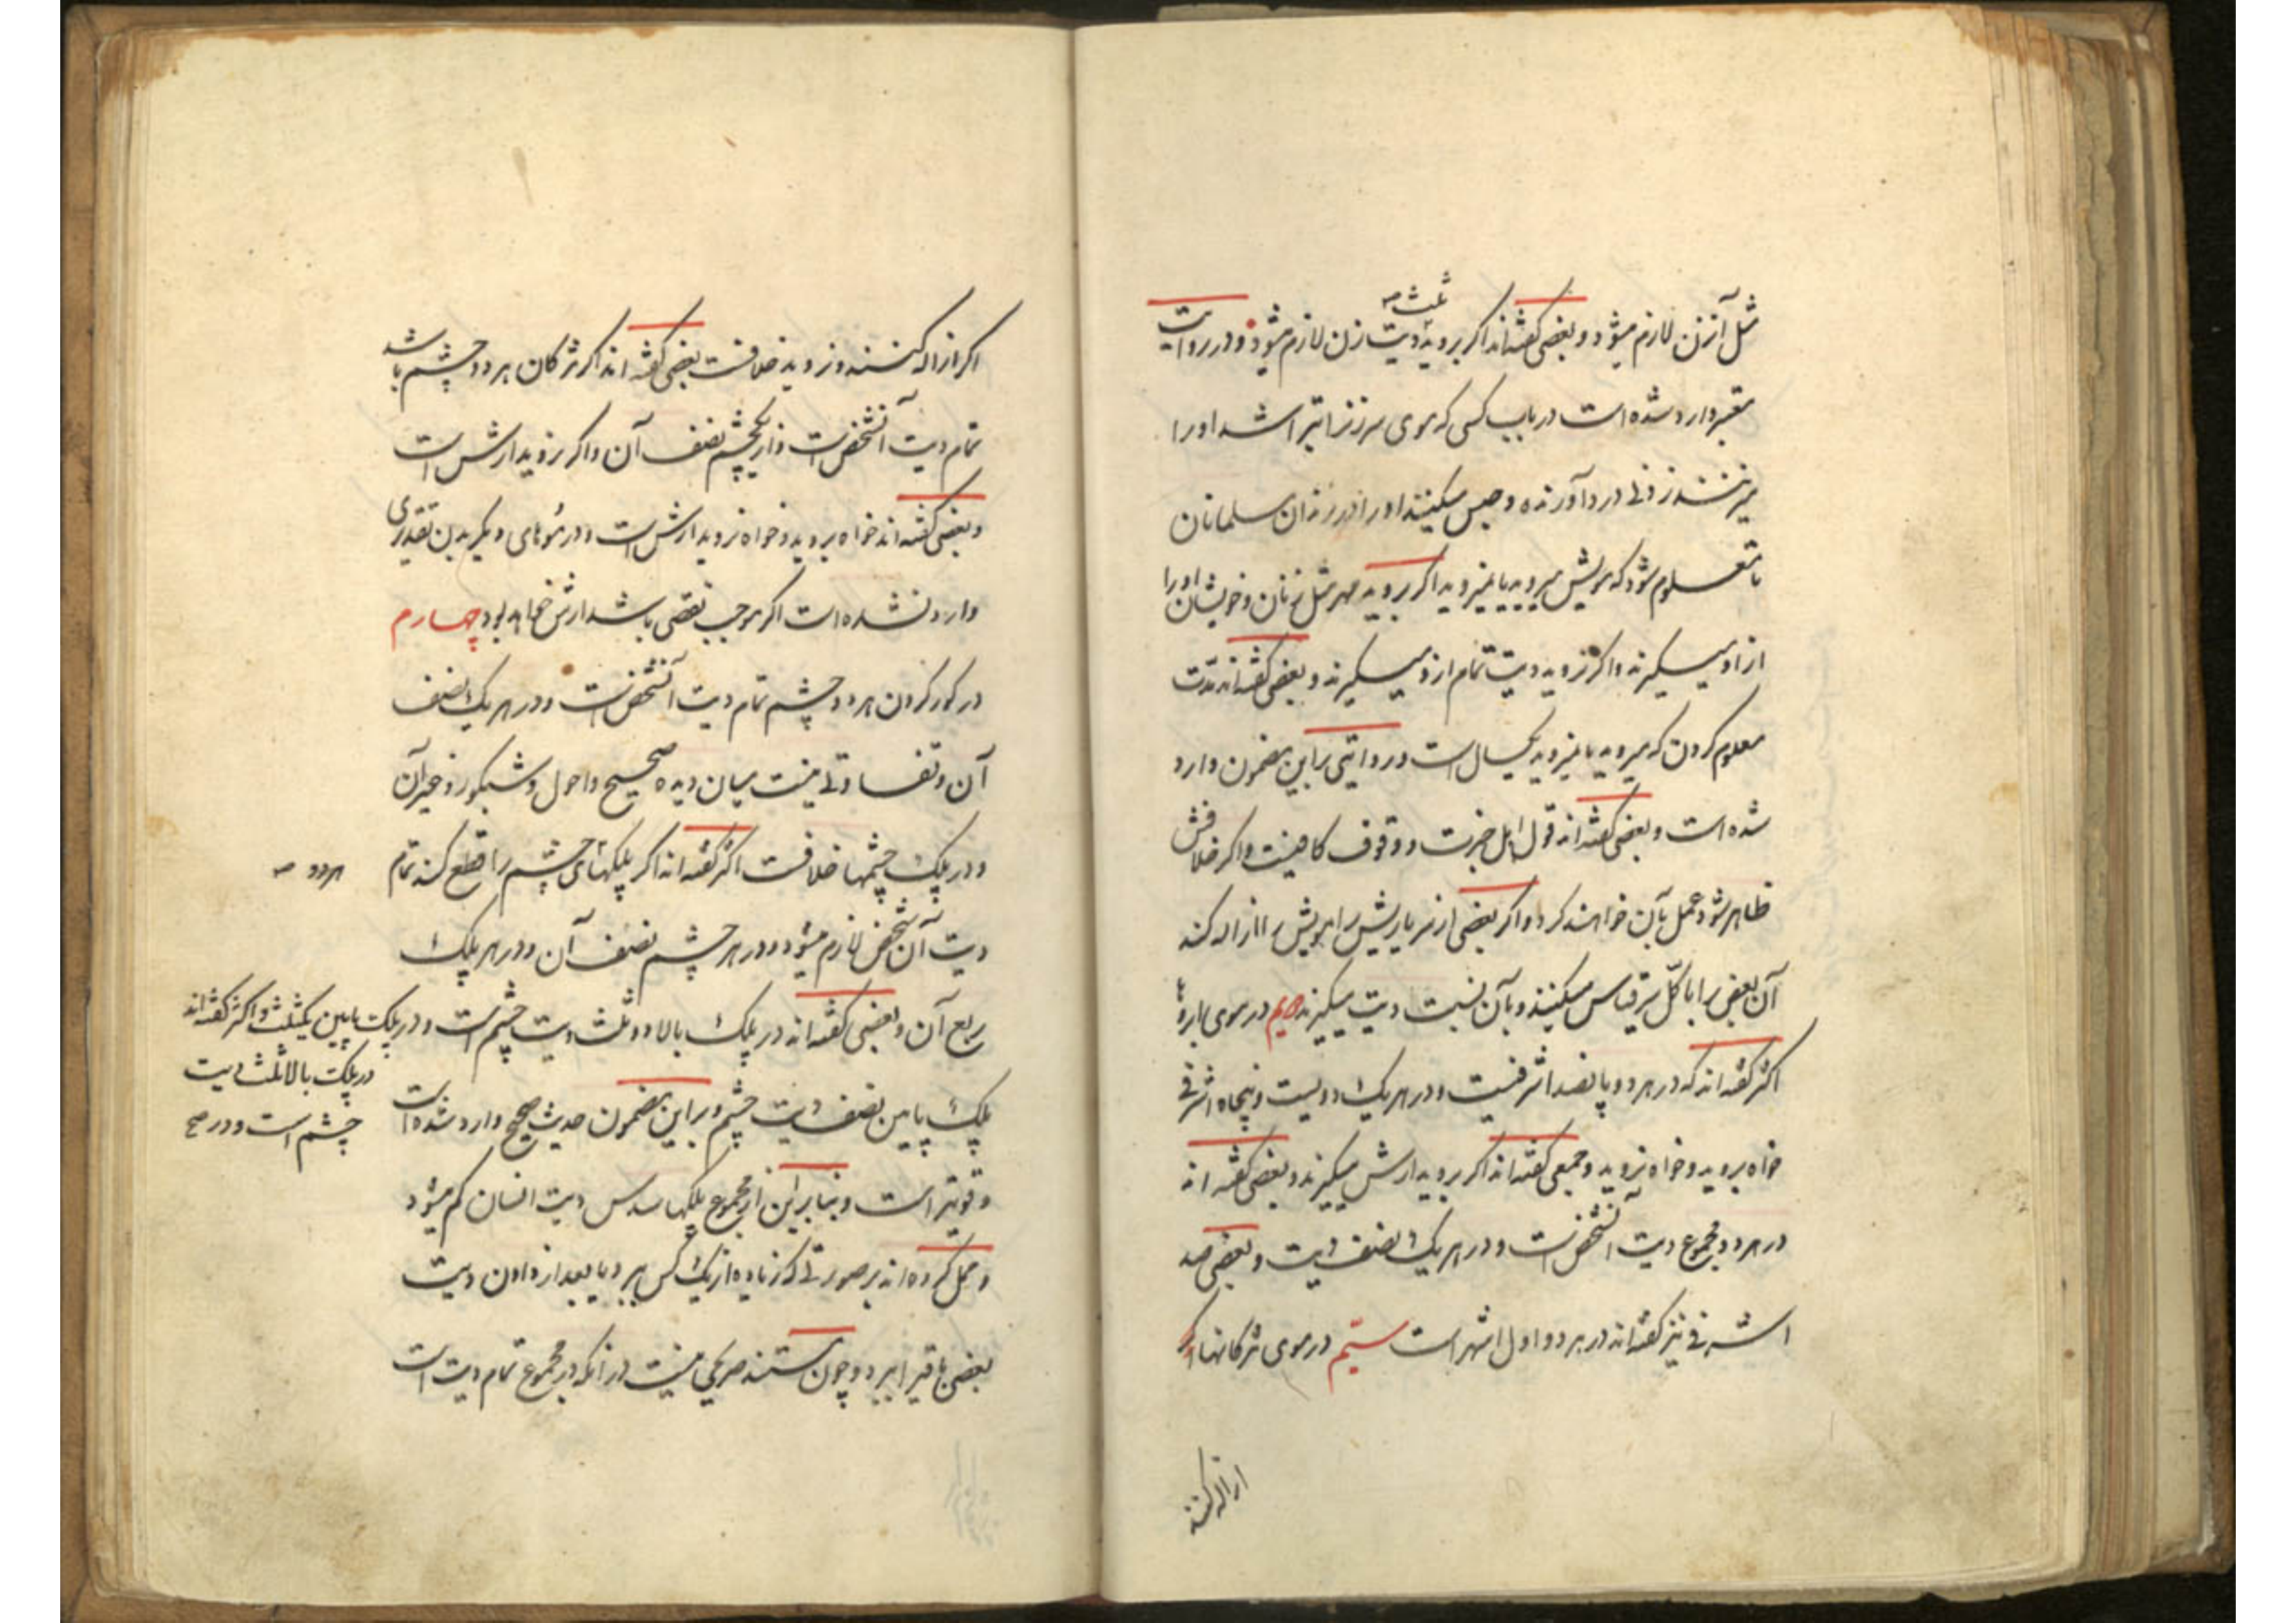 ثلث صح
مثل آن زن لازم میشود و بعضی گفته‌اند اگر بروید دیت زن لازم میشود و در روایت
معتبر وارد شده است در باب کسی که موی سر زنرا بتراشد او را
میزنند زدنی درد آورنده و حبس میکنند او را در زندان مسلمانان
تا معلوم شود که مویش میروید یا نمیروید اگر بروید مهر مثل زنان و خویشان او را
از او میگیرند و اگر نروید دیت تمام ازو میگیرند و بعضی گفته‌اند مدّت
معلوم کردن که میروید یا نمیروید یکسال است و روایتی براین مضمون وارد
شده است و بعضی گفته‌اند قول اهل خبرت و وقوف کافیست و اگر خلافش
ظاهر شود عمل بآن خواهند کرد و اگر بعضی از سر یا ریش را مویش را ازاله کند
آن بعض را با کلّ سر قیاس میکنند و بآن نسبت دیت میگیرند دویم در موی ابروء
اکثر گفته‌اند که در هر دو پانصد اشرفیست و در هر یک دویست و پنجاه اشرفی
خواه بروید و خواه نروید و جمعی گفته‌اند اگر بروید ارش میگیرند و بعضی گفته اند
در هر دو مجموع دیت آنشخص است و در هر یک نصف دیت و بعضی صد
اشرفی نیز گفته‌اند در هر دو و اول اشهر است سیّم در موی مژگانها اگر
ازاله کنند
اگر ازاله کنند و نروید خلافست بعضی گفته اند اگر مژگان هر دو چشم باشد
تمام دیت آنشخص است و از یکچشم نصف آن و اگر بروید ارش است
و بعضی گفته‌اند خواه بروید و خواه نروید ارش است و در موهای دیگر بدن تقدیری
وارد نشده است اگر موجب نقصی باشد ارش خواهد بود چهارم
در کور کردن هر دو چشم تمام دیت آنشخص است و در هر یک نصف
آن و تفاوتی نیست میان دیده صحیح و احول و شبکور و غیر آن
و در پلک چشمها خلافست اکثر گفته اند اگر پلکهای چشم را قطع کند تمام
هر دو صح
دیت آن شخص لازم میشود و در هر چشم نصف آن و در هر پلک
ربع آن و بعضی گفته اند در پلک بالا دو ثلث دیت چشم است و در پلک پایین یکثلث و اکثر گفته‌اند
در پلک بالا ثلث دیت
چشم است و در صح
پلک پایین نصف دیت چشم و بر این مضمون حدیث صحیح وارد شده است
و قویتر است و بنا بر این از مجموع پلکها سدس دیت انسان کم میشود
و حمل کرده‌اند بر صورتی که زیاده از یک کس ببرد یا بعد از دادن دیت
بعضی باقی را ببرد و چون مستند صریحی نیست در آنکه در مجموع تمام دیت است